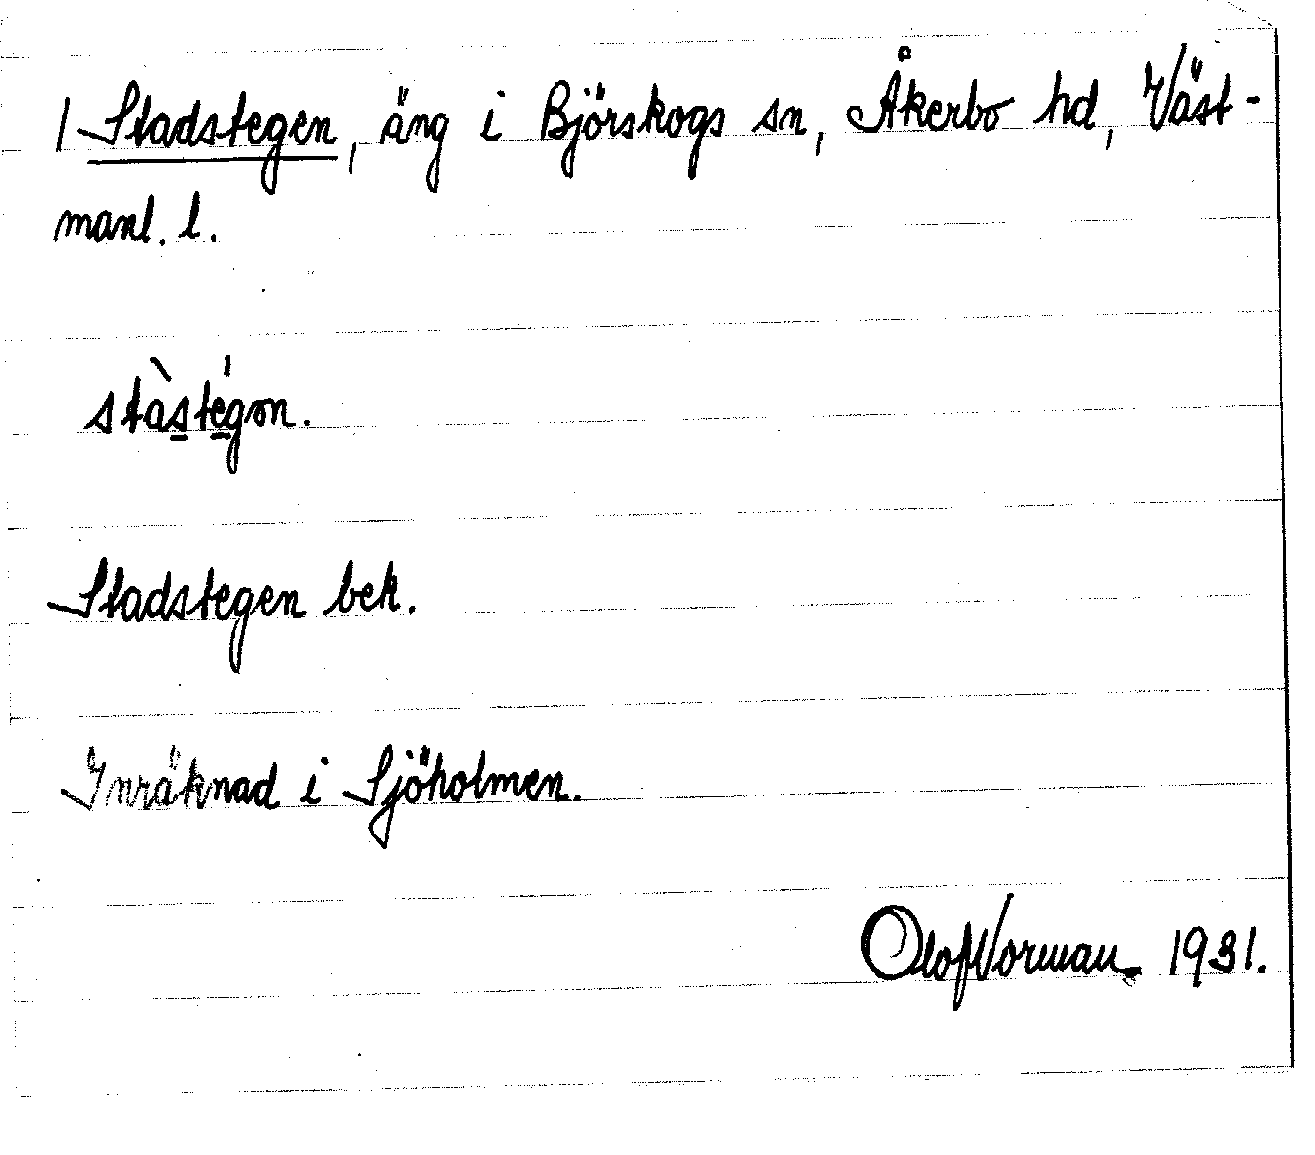 1 Stadstegen, äng i Björskogs sn, Åkerbo hd, Väst-
manl. l.
stàstégən.
Stadstegen bek.
Inräknad i Sjöholmen.
Olof Norman. 1931.